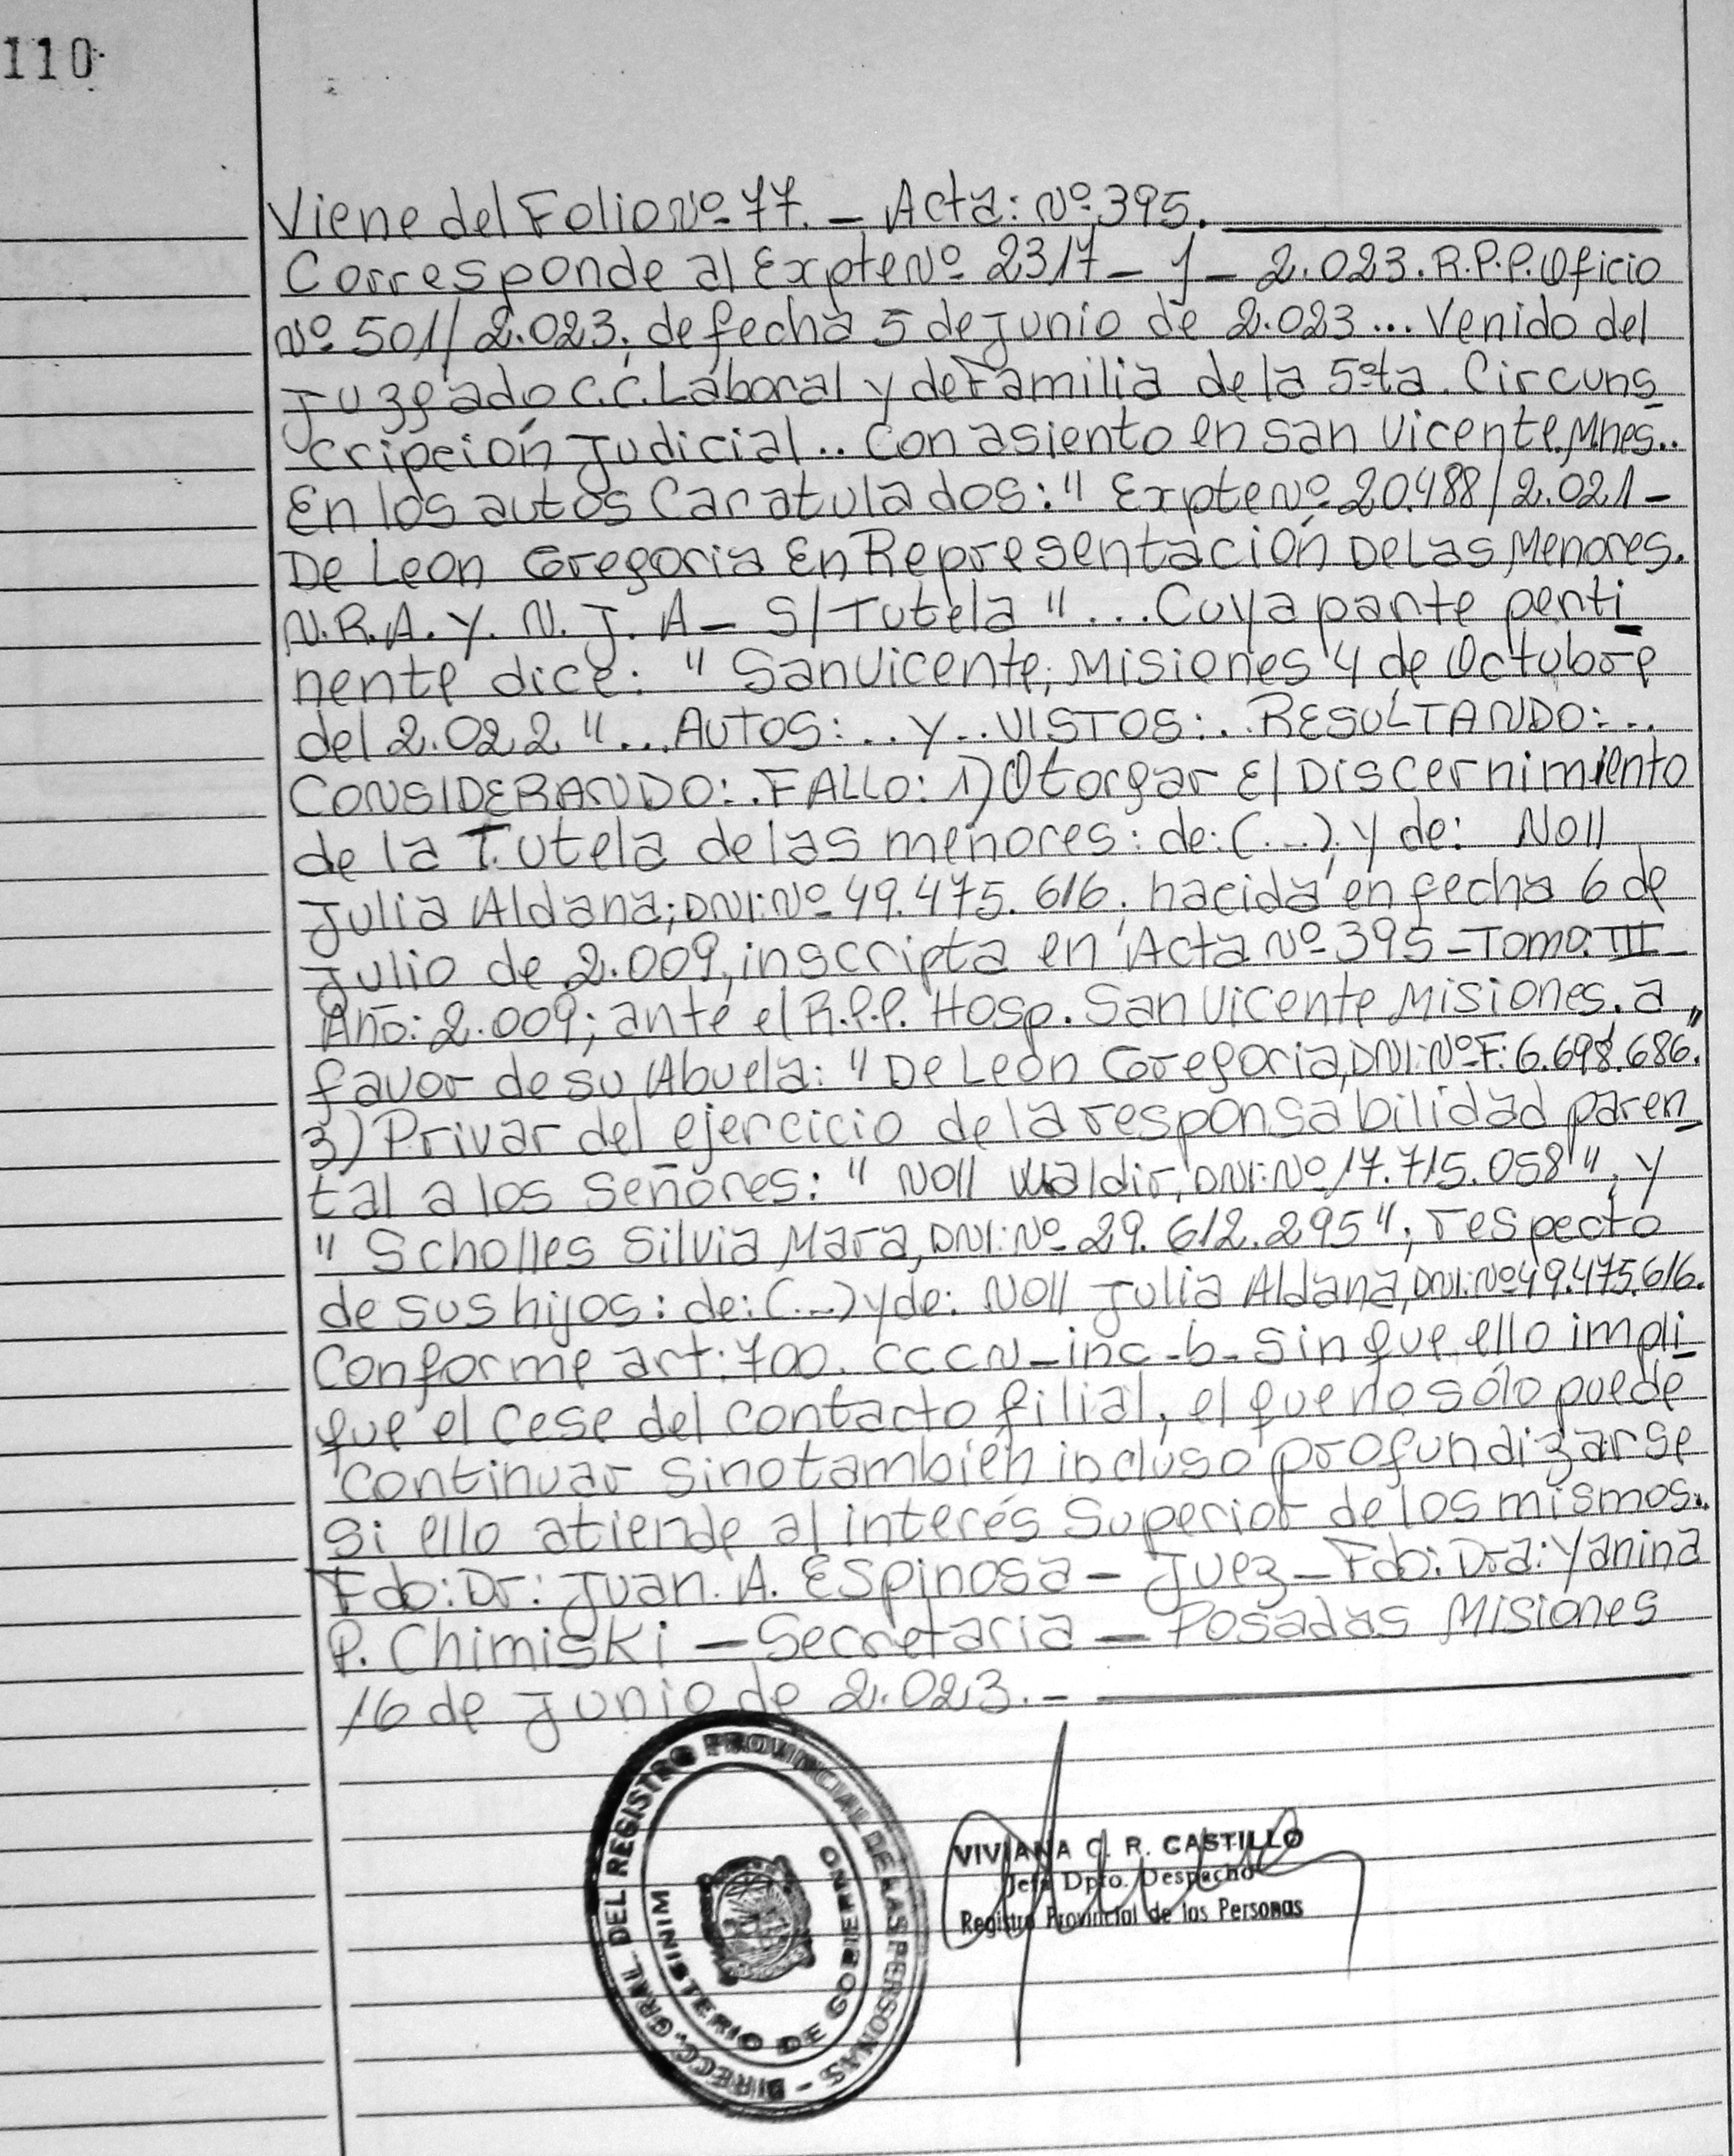 110
Viene del Folio Nº 77. - Acta: Nº 395.
Corresponde al Expte Nº 2317 - J - 2.023. R.P.P. Oficio
Nº 501/2.023, de fecha 5 de Junio de 2.023... Venido del
Juzgado C.C. Laboral y de Familia de la 5ºta. Circuns
cripción Judicial.. Con asiento en San Vicente, Mnes..
En los autos Caratulados: " Expte Nº 20.488/2.021 -
De Leon Gregoria En Representación De Las Menores.
N.R.A. Y. N. J. A - S/Tutela "... Cuya parte perti
nente dice: " San Vicente, Misiones 4 de Octubre
del 2.022 "... AUTOS:.. Y.. VISTOS:.. RESULTANDO:...
CONSIDERANDO:. FALLO: 1) Otorgar El Discernimiento
de la Tutela de las menores: de: (...) y de: Noll
Julia Aldana; DNI: Nº 49.475.616, nacida en fecha 6 de
Julio de 2.009, inscripta en Acta Nº 395 - Tomo. III -
Año: 2.009; ante el R.P.P. Hosp. San Vicente Misiones. a
favor de su Abuela: " De León Gregoria, DNI: Nº F: 6.698.686. "
3) Privar del ejercicio de la responsabilidad paren
tal a los Señores: " Noll Waldir, DNI: Nº 17.715.058 ", y
" Scholles Silvia Mara, DNI: Nº 29.612.295 ", respecto
de sus hijos: de: (...) y de: Noll Julia Aldana, DNI: Nº 49.475.616.
Conforme art: 700. CCCN - inc - b - Sin que ello impli
que el Cese del contacto filial, el que no sólo puede
continuar sino también incluso profundizarse
si ello atiende al interés Superior de los mismos..
Fdo: Dr: Juan. A. Espinosa - Juez - Fdo: Dra: Yanina
P. Chimiski - Secretaria - Posadas Misiones
16 de Junio de 2.023. -
DIRECC. GRAL. DEL REGISTRO PROVINCIAL DE LAS PERSONAS -
MINISTERIO DE GOBIERNO
VIVIANA C. R. CASTILLO
Jefa Dpto. Despacho
Registro Provincial de las Personas